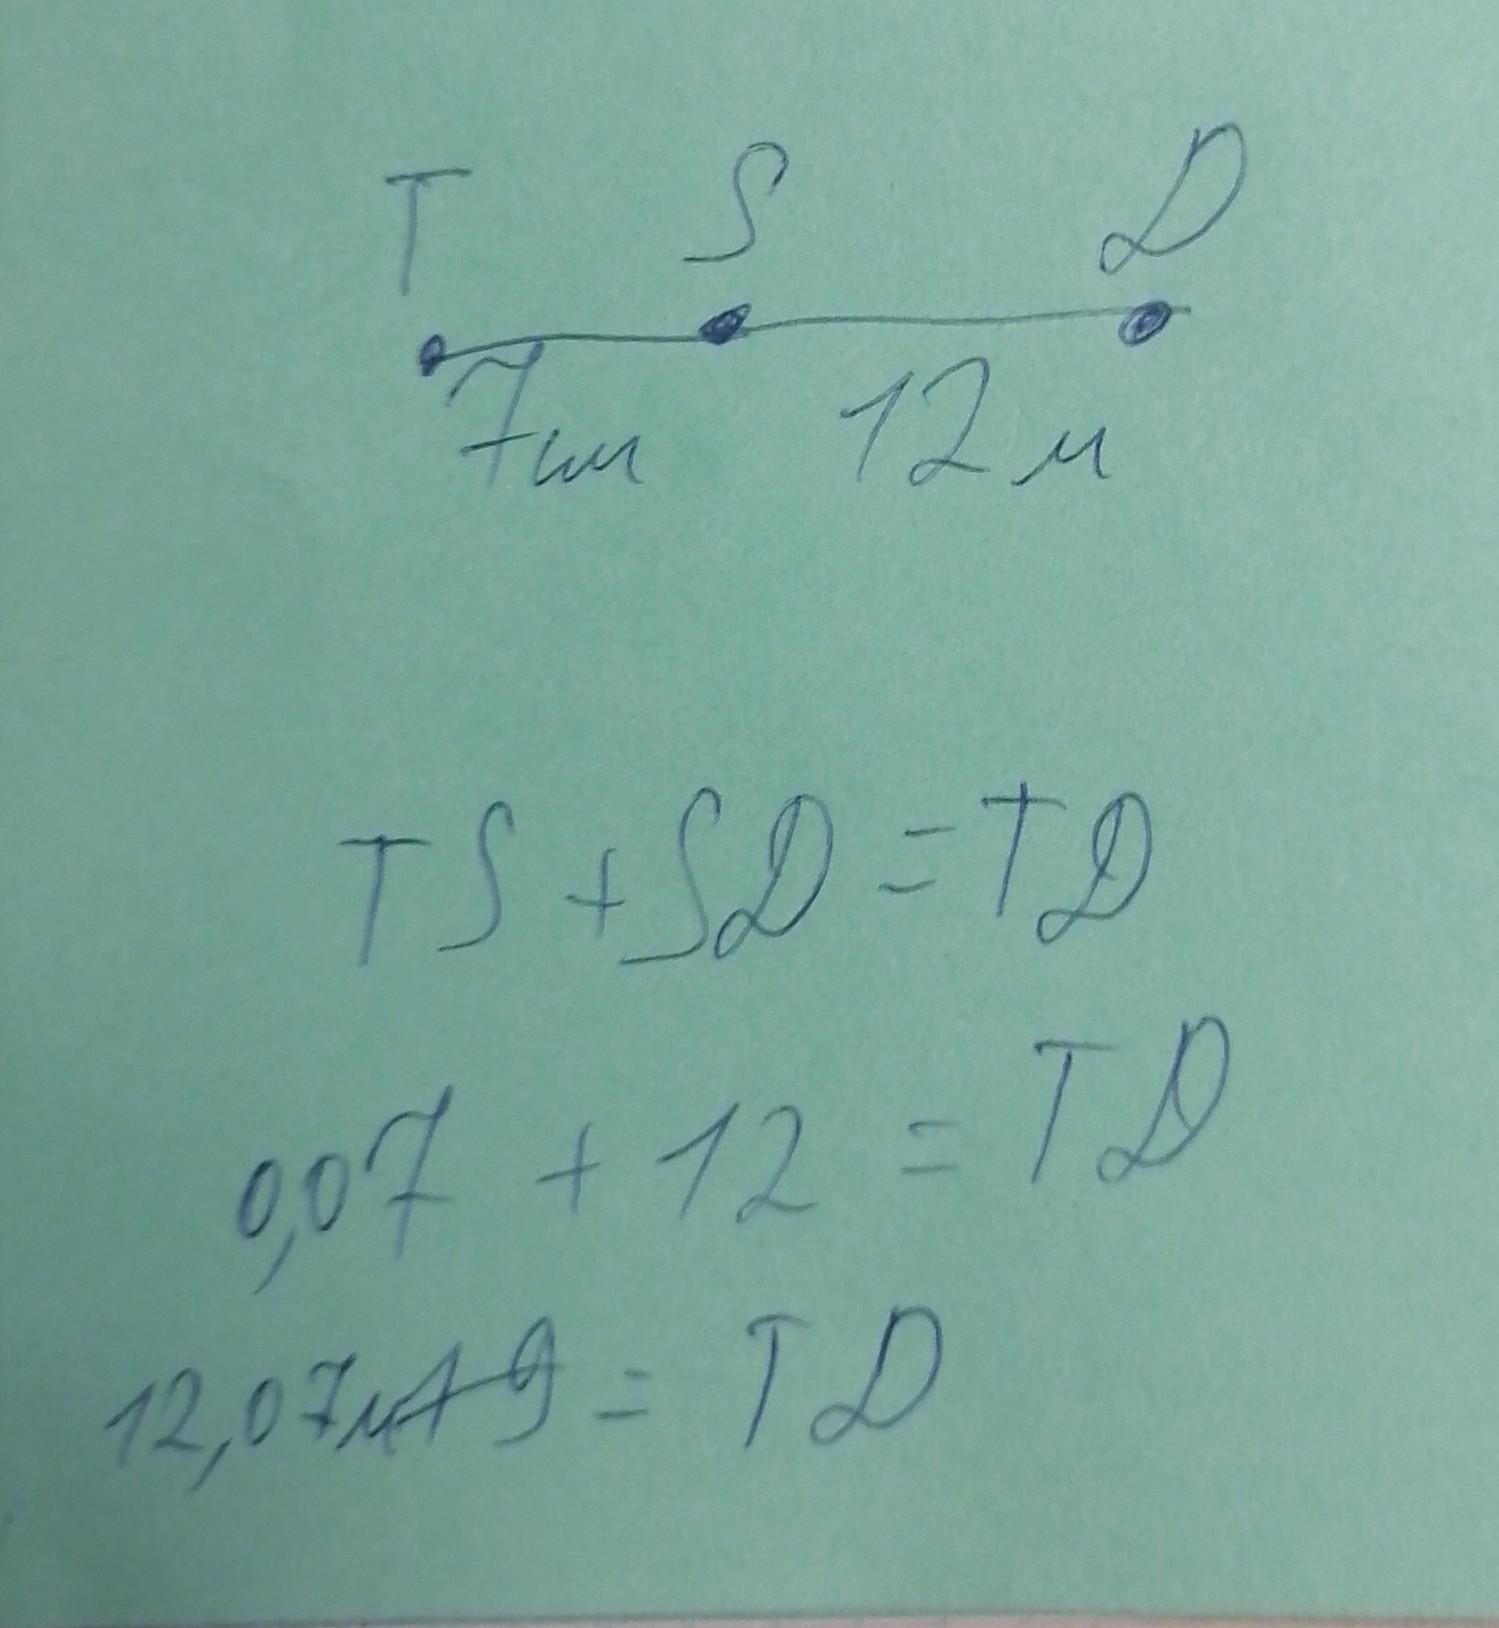 T S D
7см 12м
TS + SD = TD
0,07 + 12 = TD
12,07м = TD